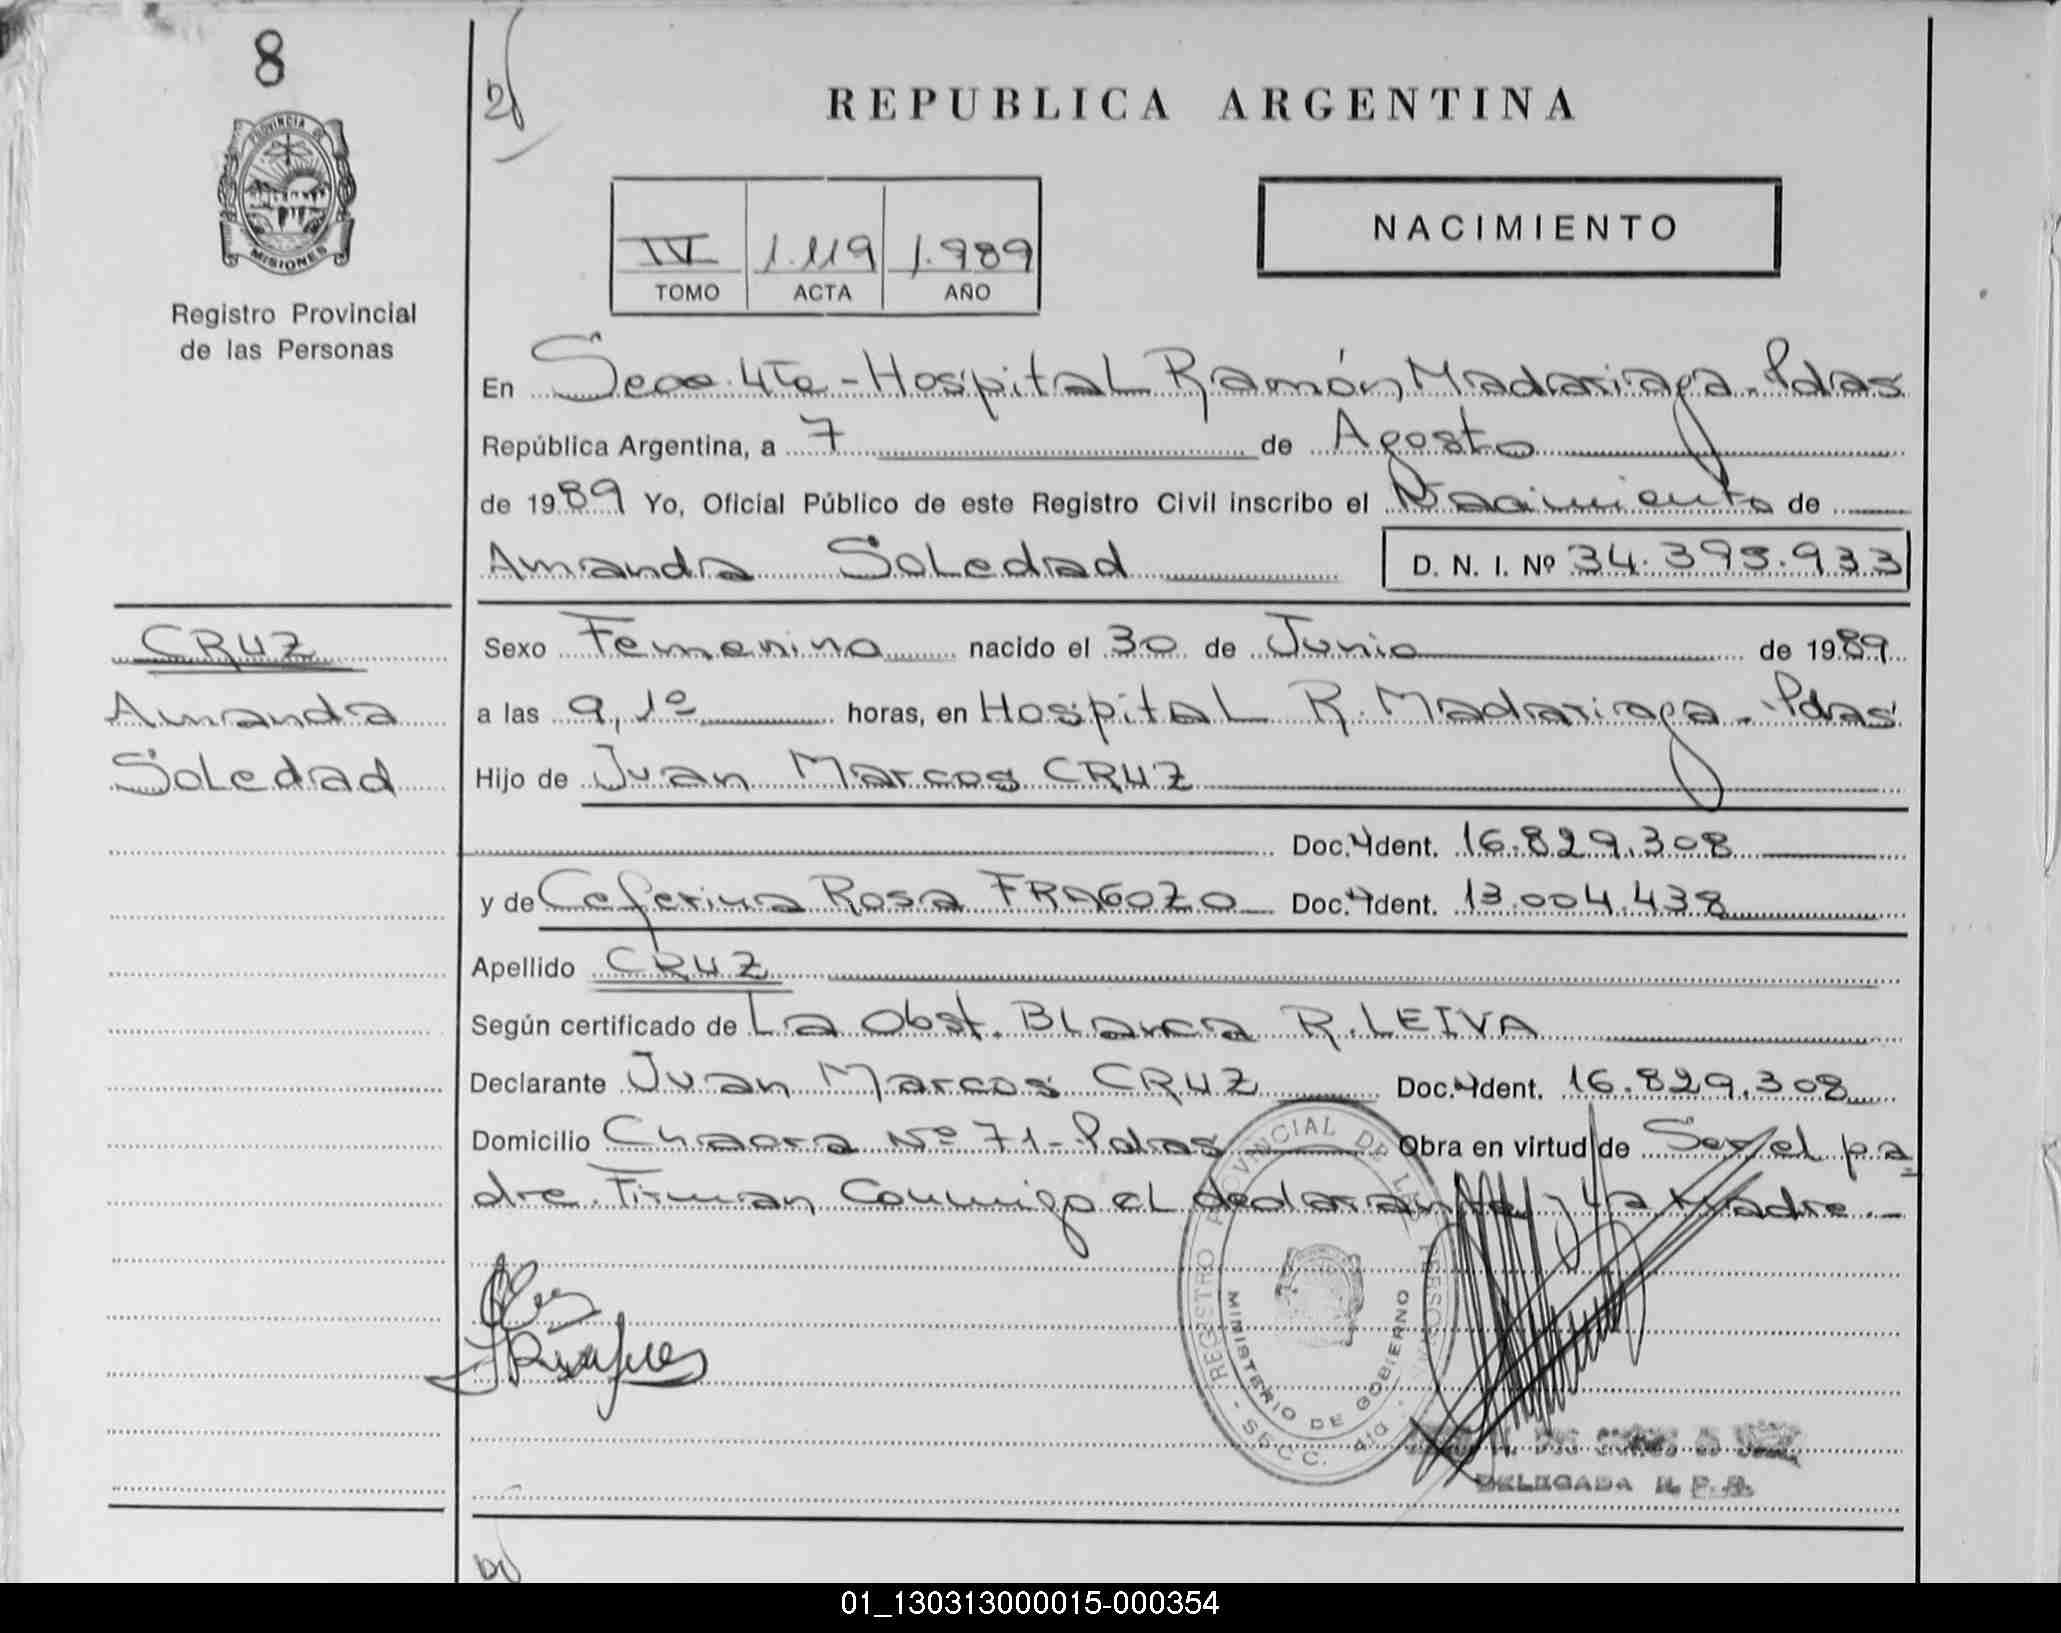 8
PROVINCIA DE
MISIONES
Registro Provincial
de las Personas
CRUZ
Amanda
Soledad
2)
REPUBLICA ARGENTINA
IV 1.119 1.989
TOMO ACTA AÑO
NACIMIENTO
En Secc. 4ta - Hospital Ramón Madariaga - Pdas
República Argentina, a 7 de Agosto
de 1989 Yo, Oficial Público de este Registro Civil inscribo el Nacimiento de
Amanda Soledad D. N. I. Nº 34.395.933
Sexo Femenino nacido el 30 de Junio de 1989
a las 9,1º horas, en Hospital R. Madariaga - Pdas
Hijo de Juan Marcos CRUZ
Doc. Ident. 16.829.308
y de Ceferina Rosa FRAGOZO Doc. Ident. 13.004.438
Apellido CRUZ
Según certificado de La Obst. Blanca R. LEIVA
Declarante Juan Marcos CRUZ Doc. Ident. 16.829.308
Domicilio Chacra Nº 71 - Pdas Obra en virtud de Ser el pa-
dre. Firman Conmigo el declarante y La Madre.-
REGISTRO PROVINCIAL DE LAS PERSONAS
MINISTERIO DE GOBIERNO
SECC. 4ta
DELEGADA R. P. P.
01_130313000015-000354